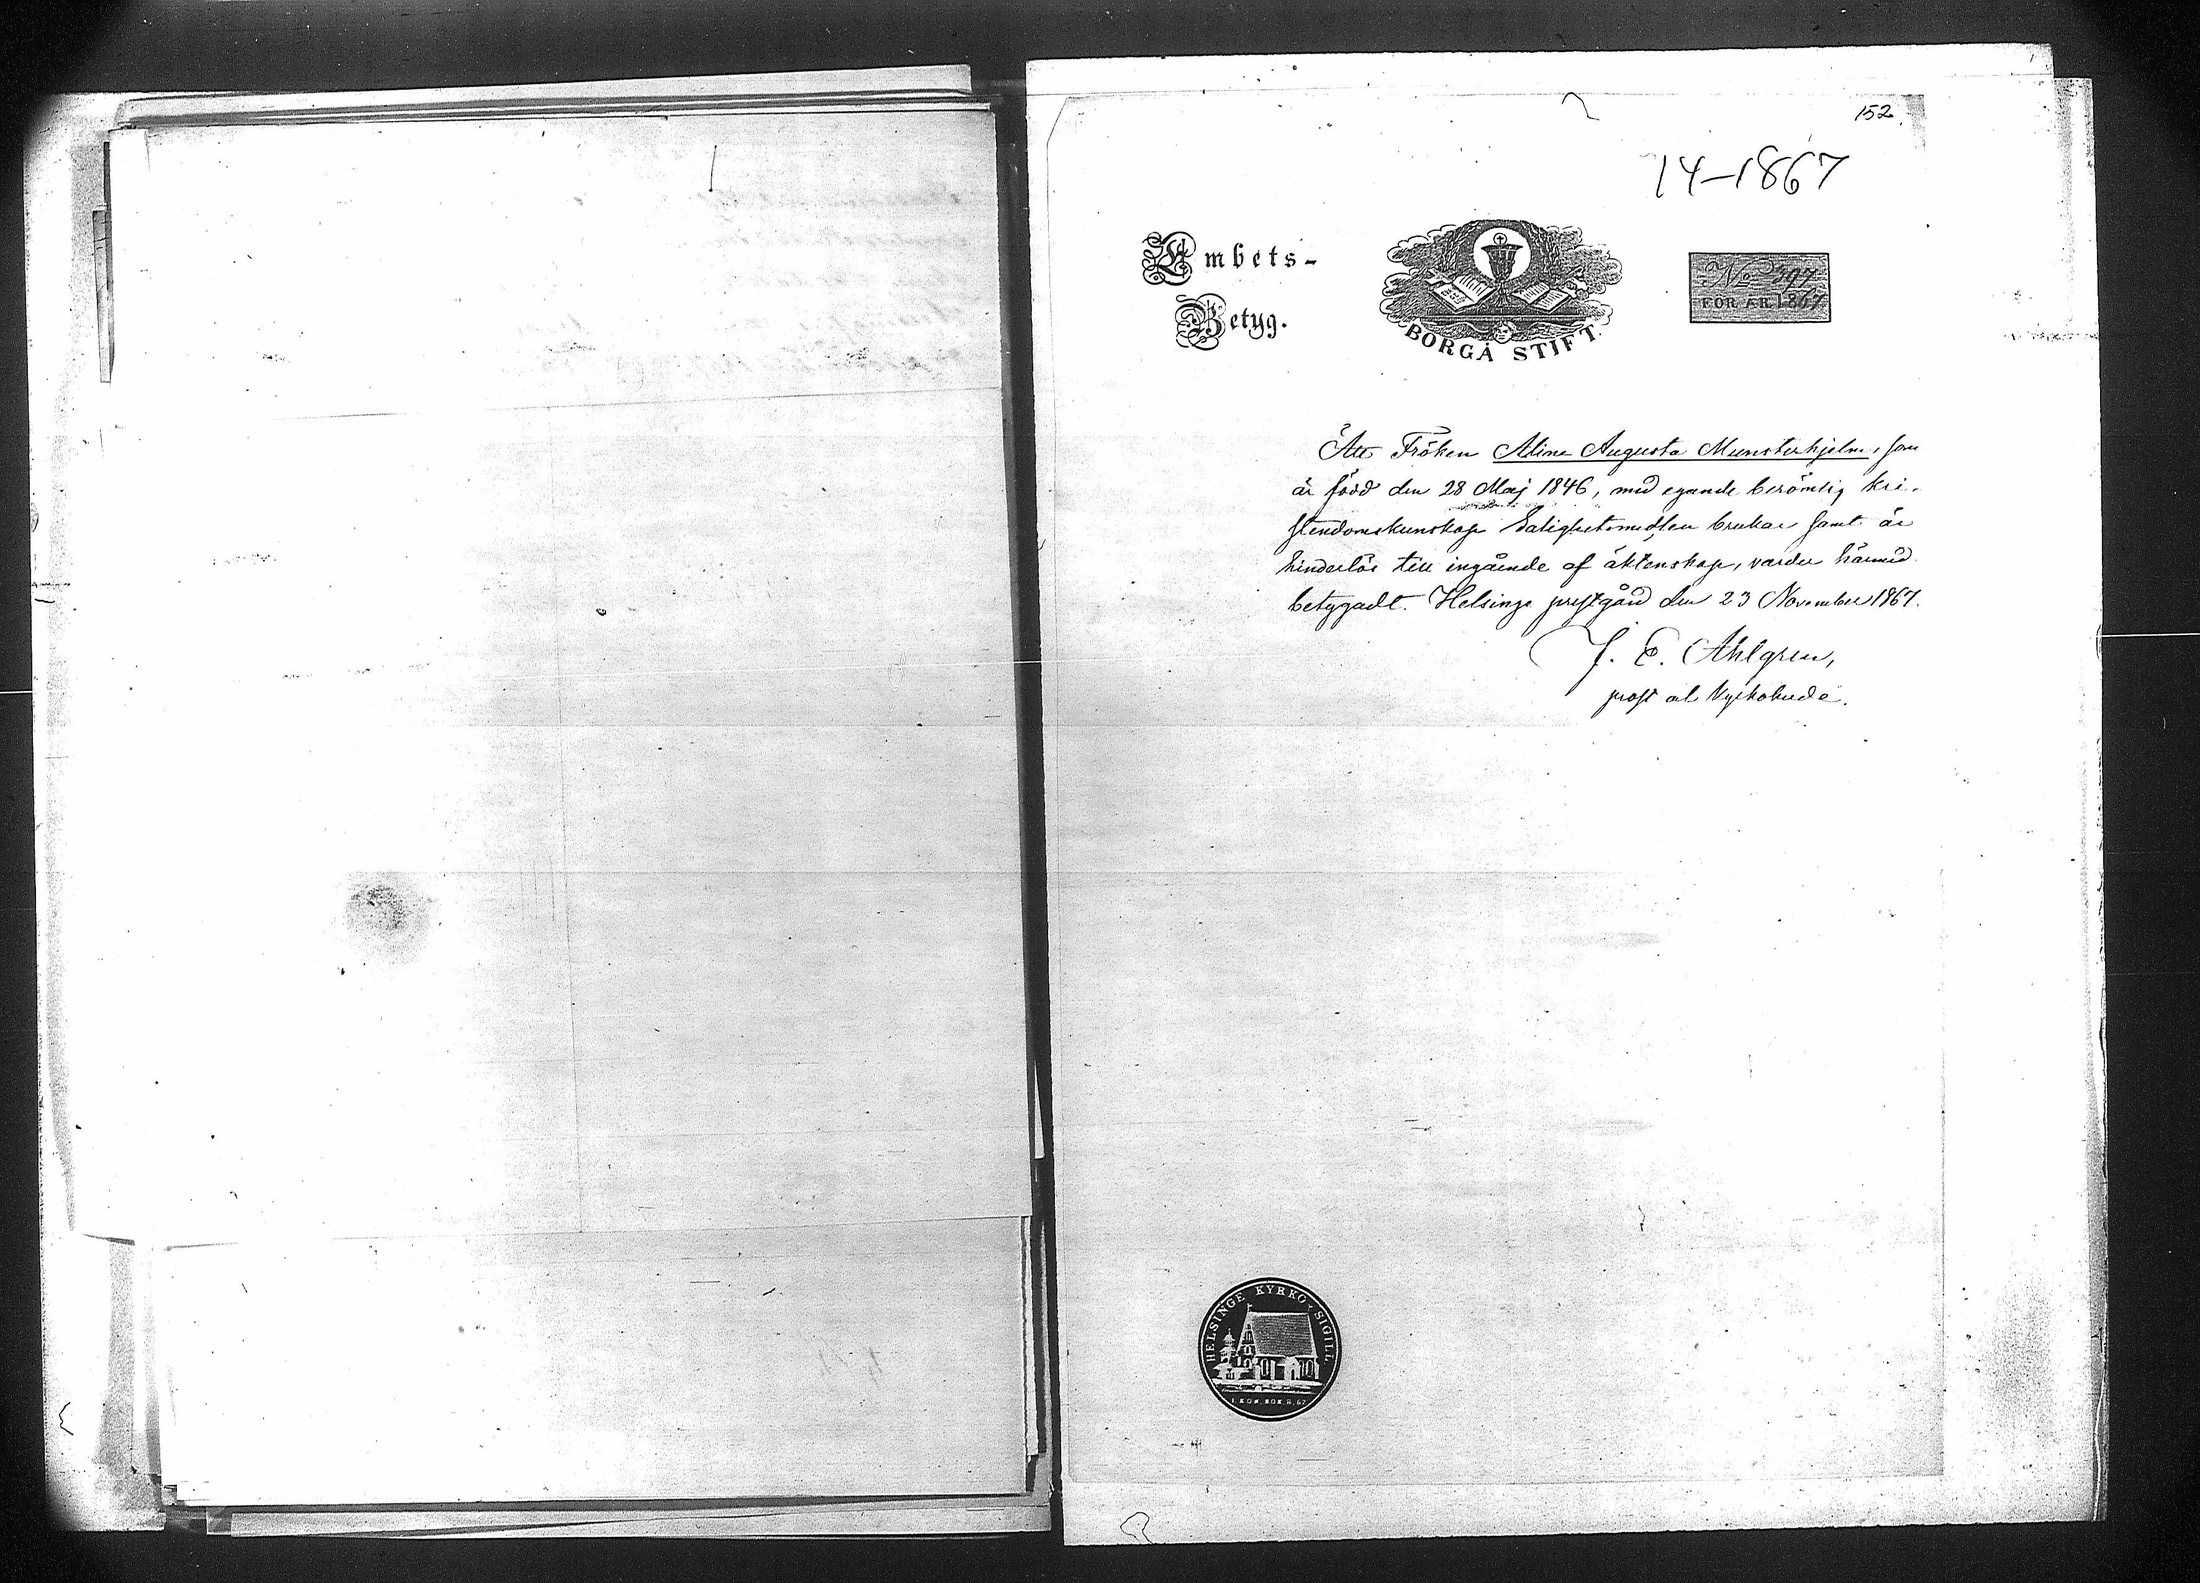 152
14-1867
Embets-
Betyg.
BORGÅ STIFT.
No 397
FÖR ÅR 1867
Att Fröken Alina Augusta Munsterhjelm, som
är född den 28 Maj 1846, med egande berömlig kri-
stendomskunskap Salighetsmedlen brukar samt är
hinderlös till ingående af äktenskap, varder härmed
betygadt. Helsinge prestgård den 23 November 1867.
J. E. Ahlgren,
prost och Kyrkoherde.
HELSINGE KYRKO SIGILL